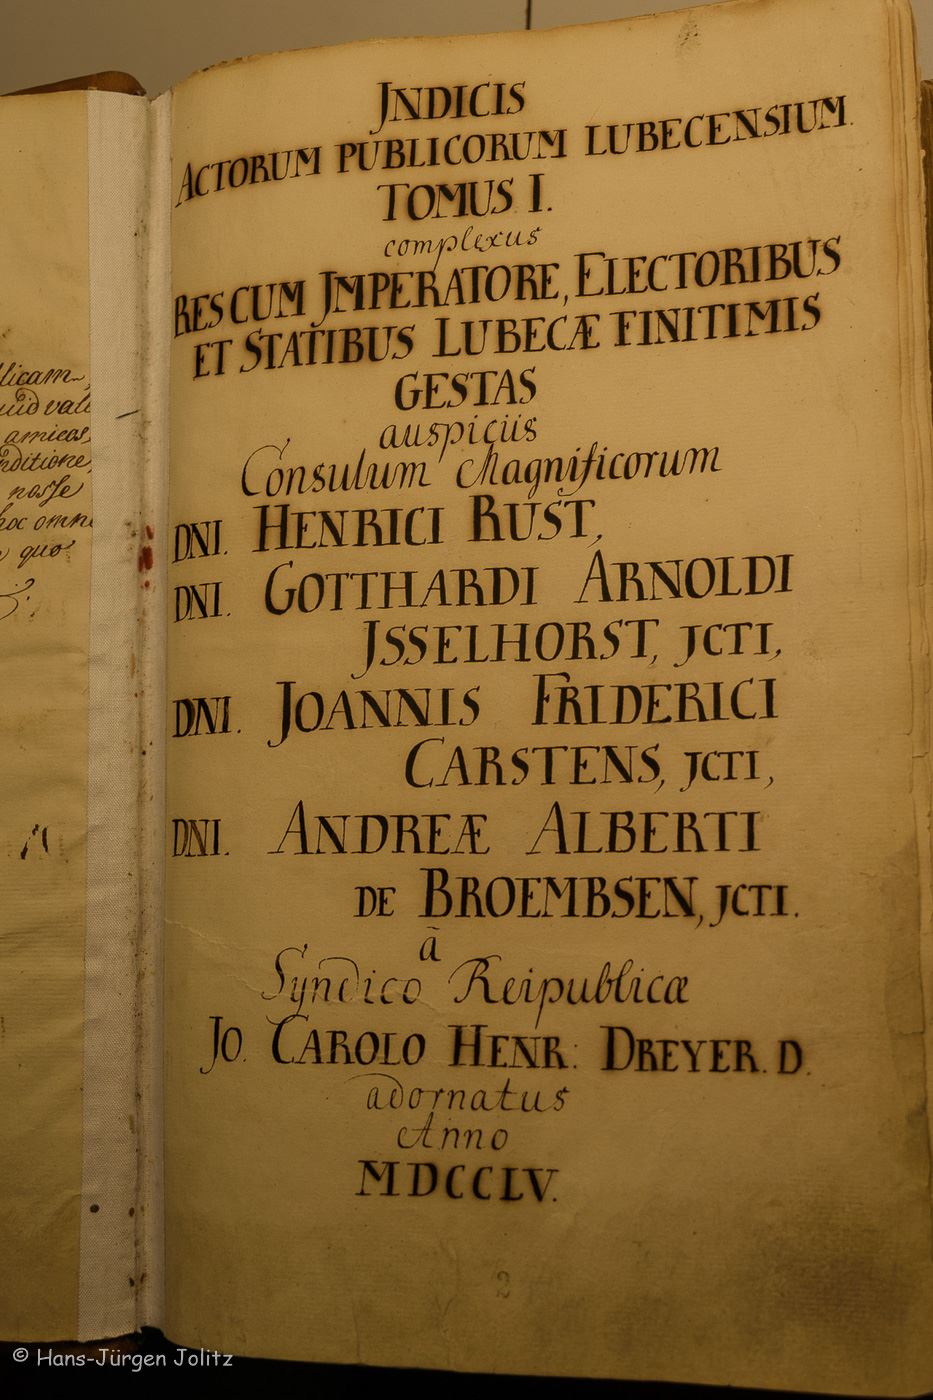 licam
uid vale
amicos,
nditione,
nosse
hoc omne
quo
JNDICIS
ACTORUM PUBLICORUM LUBECENSIUM.
TOMUS I.
complexus
RES CUM JMPERATORE, ELECTORIBUS
ET STATIBUS LUBECÆ FINITIMIS
GESTAS
auspiciis
Consulum Magnificorum
DNI. HENRICI RUST,
DNI. GOTTHARDI ARNOLDI
JSSELHORST, JCTI,
DNI. JOANNIS FRIDERICI
CARSTENS, JCTI,
DNI. ANDREÆ ALBERTI
DE BROEMBSEN, JCTI.
ã
Syndico Reipublicæ
JO. CAROLO HENR: DREYER. D.
adornatus
Anno
MDCCLV.
2
© Hans-Jürgen Jolitz